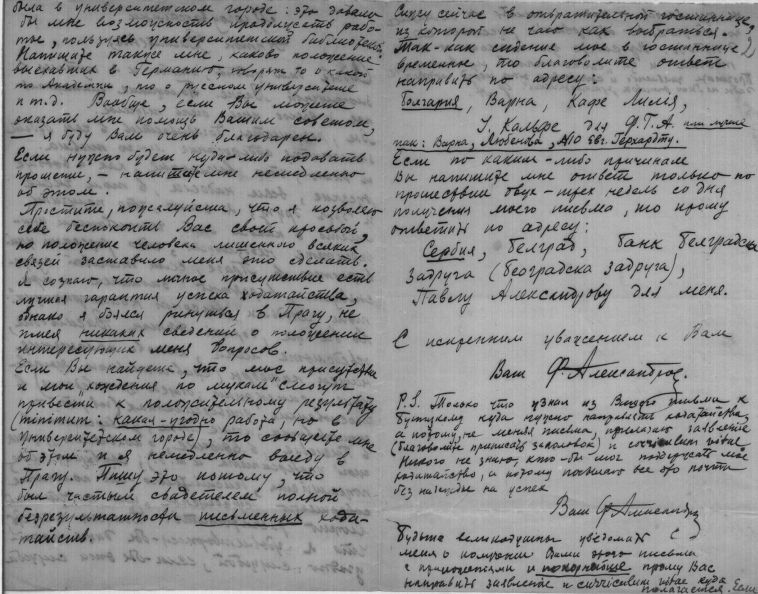 была в университетском городе: это давало
бы мне возможность продолжать рабо-
ты, пользуясь университетской библиотекой.
Напишите также мне, каково положение
выехавших в Германию, говорят то о какой
то Академии, то о русском университете
и т.д. Вообще, если Вы можете
оказать мне помощь Вашим советом,
— я буду Вам очень благодарен.
Если нужно будет куда-либо подавать
прошение, — напишите мне немедленно
об этом.
Простите, пожалуйста, что я позволяю
себе беспокоить Вас своей просьбой,
но положение человека лишенного всяких
связей заставило меня это сделать.
Я сознаю, что личное присутствие есть
лучшая гарантия успеха ходатайства,
однако я боялся ринуться в Прагу, не
имея никаких сведений о положении
интересующих меня вопросов.
Если Вы найдете, что мое присутствие
и мои "хождения по мукам" смогут
привести к положительному результату
(minimum: какая-угодно работа, но в
университетском городе), то сообщите мне
об этом и я немедленно выеду в
Прагу. Пишу это потому, что
был частым свидетелем полной
безрезультатности письменных хода-
тайств.
Сижу сейчас в отвратительной гостинице,
из которой не чаю как выбраться.
Так-как сидение мое в гостиннице
временное, то благоволите ответ
направить по адресу:
Болгария, Варна, Кафе Лилия,
Г. Кальфе для Ф.Т.А. или лучше
так: Варна, Любенъ, №10 Евг. Герхардту.
Если по каким-либо причинам
Вы напишите мне ответ только по
прошествии двух-трех недель со дня
получения моего письма, то прошу
ответить по адресу:
Сербия, Белград, Банк Белградска
Задруга (Београдска Задруга),
Павлу Александрову для меня.
С искренним уважением к Вам
Ваш Ф. Александров
P.S. Только что узнал из Вашего письма к
куда нужно направлять ходатайства,
а потому, не меняя письма, прилагаю заявление
(благоволите приписать заголовок) и curriculum vitae
Никого не знаю, кто-бы мог поддержать мое
ходатайство, а потому посылаю все это почти
без надежды на успех
Ваш Ф. Александров
Будьте великодушны уведомить
меня о получении Вами этого письма
с приложениями и покорнейше прошу Вас
направить заявление и curriculum vitae куда
полагается. Если